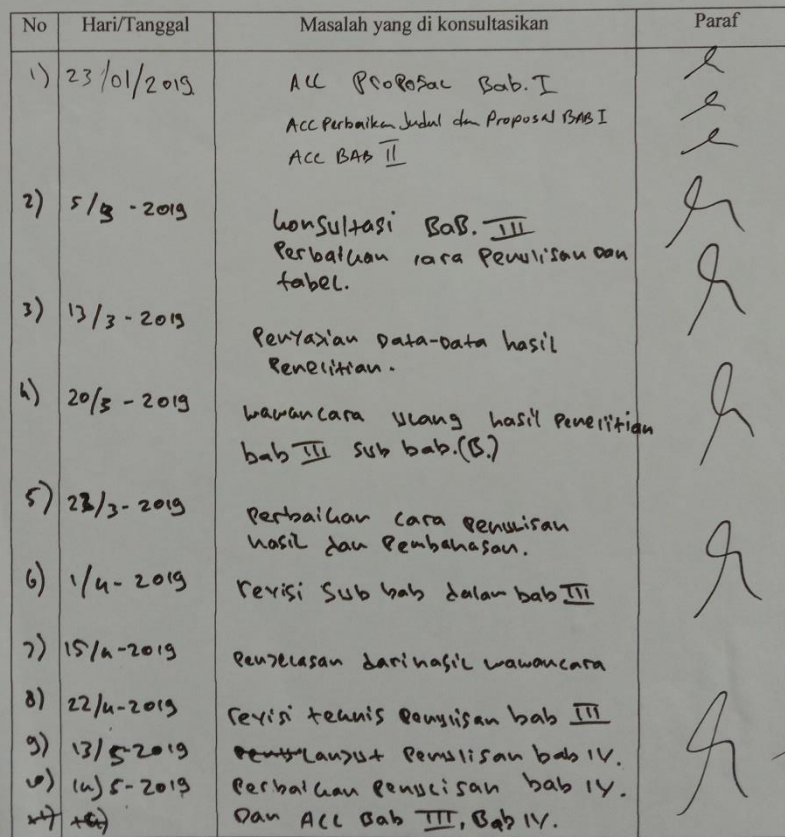 No Hari/Tanggal Masalah yang di konsultasikan Paraf
1) 23/01/2019 ACC Proposal Bab. I
ACC Perbaikan Judul dan Proposal BAB I
ACC BAB II
2) 5/3 - 2019 konsultasi BaB. III
Perbaikan cara Penulisan Dan
tabel.
3) 13/3 - 2019 Penyajian Data-Data hasil
Penelitian.
4) 20/3 - 2019 wawancara ulang hasil Penelitian
bab III sub bab.(B.)
5) /3 - 2019 Perbaikan cara penulisan
hasil dan Pembahasan.
6) 1/4 - 2019 revisi Sub bab dalam bab III
7) 15/4 - 2019 Penjelasan dari hasil wawancara
8) 22/4 - 2019 revisi teknis penulisan bab III
9) 13/5-2019 Lanjut Penulisan bab IV.
10) 5-2019 Perbaikan penulisan bab IV.
Dan ACC Bab III, Bab IV.